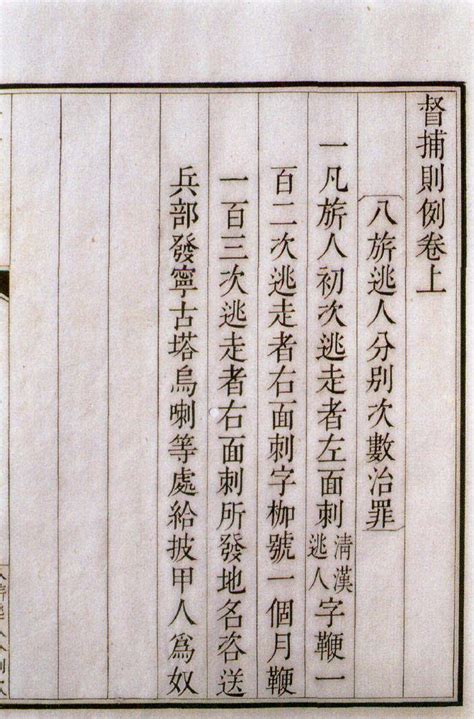 督捕則例卷上
八旂逃人分别次數治罪
一凡旂人初次逃走者左面刺清漢逃人字鞭一
百二次逃走者右面刺字枷號一個月鞭
一百三次逃走者右面刺所發地名咨送
兵部發寧古塔烏喇等處給披甲人為奴